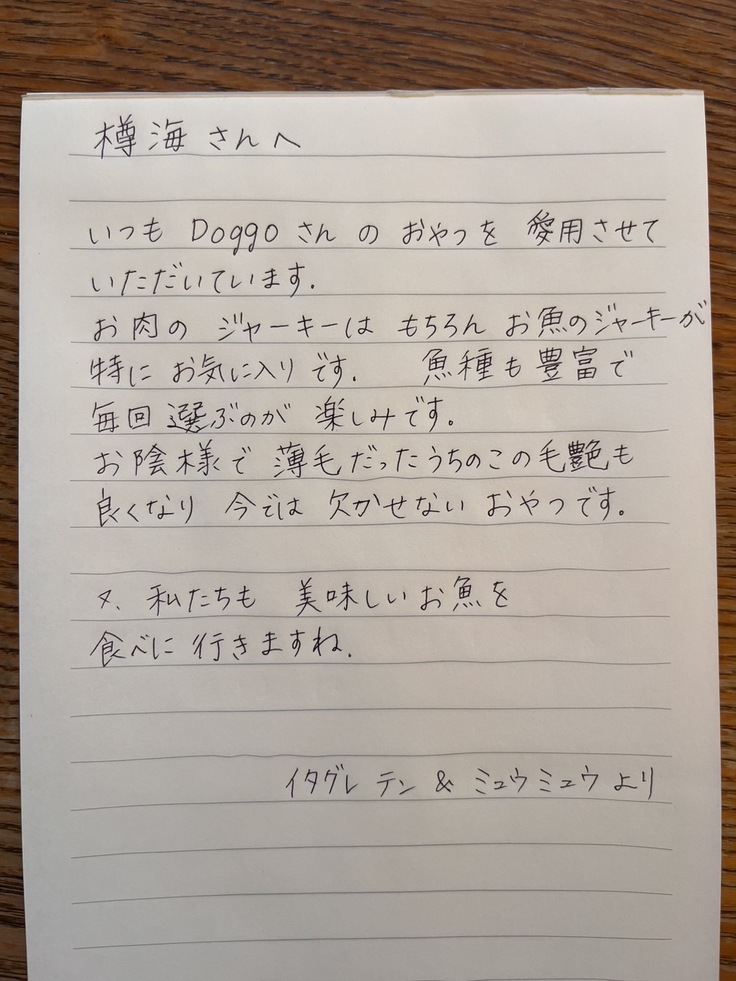 樽海さんへ
いつも Doggoさん の おやつを 愛用させて
いただいています.
お肉の ジャーキーは もちろん お魚のジャーキーが
特に お気に入りです. 魚種も豊富で
毎回 選ぶのが 楽しみです。
お陰様で 薄毛だったうちのこの毛艶も
良くなり 今では 欠かせない おやつです。
又、私たちも 美味しいお魚を
食べに 行きますね.
イタグレ テン & ミュウミュウ より